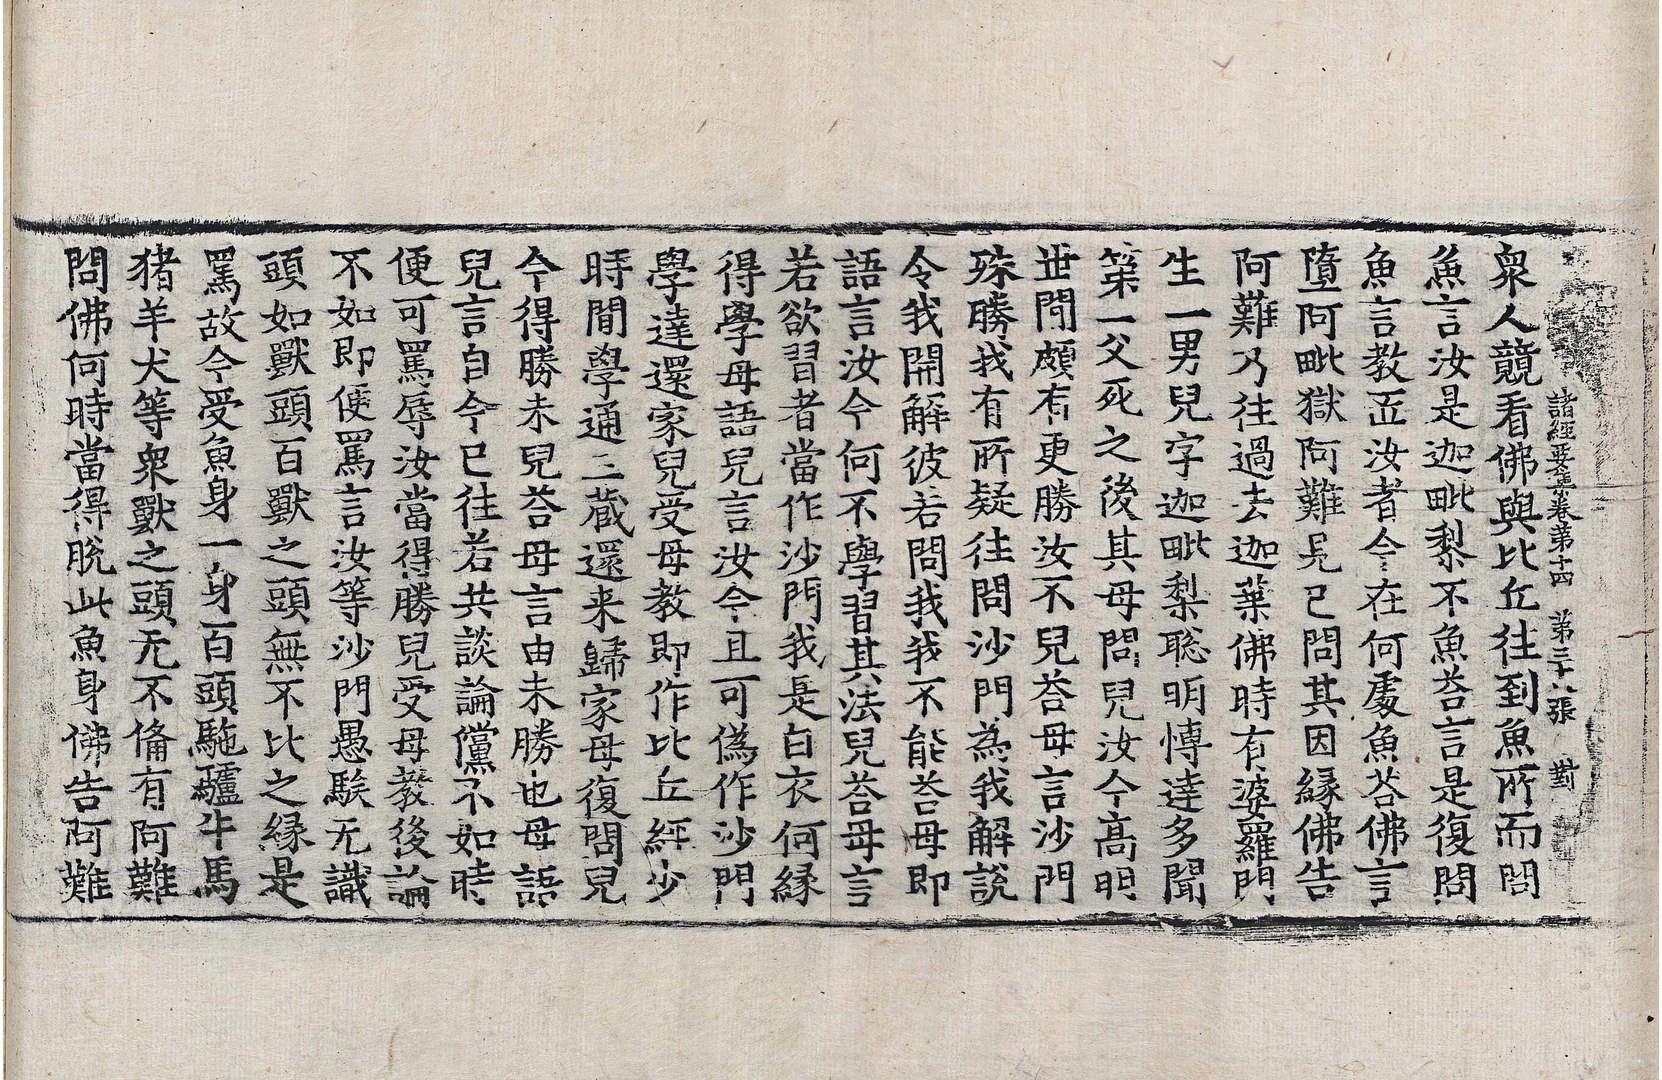 諸經要集卷第十四 第三十八張 對
衆人競看佛與比丘往到魚所而問
魚言汝是迦毗梨不魚荅言是復問
魚言教𠯁汝者今在何處魚荅佛言
墮阿毗獄阿難見已問其因緣佛告
阿難乃往過去迦葉佛時有婆羅門
生一男兒字迦毗梨聦明愽達多聞
第一父死之後其母問兒汝今高明
世閒頗有更勝汝不兒荅母言沙門
殊勝我有所疑往問沙門爲我解說
令我開解彼若問我我不能荅母即
語言汝今何不學習其法兒荅母言
若欲習者當作沙門我是白衣何緣
得學母語兒言汝今且可僞作沙門
學達還家兒受母教即作比丘經少
時閒學通三藏還来歸家母復問兒
今得勝未兒荅母言由未勝也母語
兒言自今已往若共談論儻不如時
便可罵辱汝當得勝兒受母教後論
不如即便罵言汝等沙門愚騃无識
頭如獸頭百獸之頭無不比之緣是
罵故今受魚身一身百頭駞驢牛馬
猪羊犬等衆獸之頭无不俻有阿難
問佛何時當得脫此魚身佛告阿難